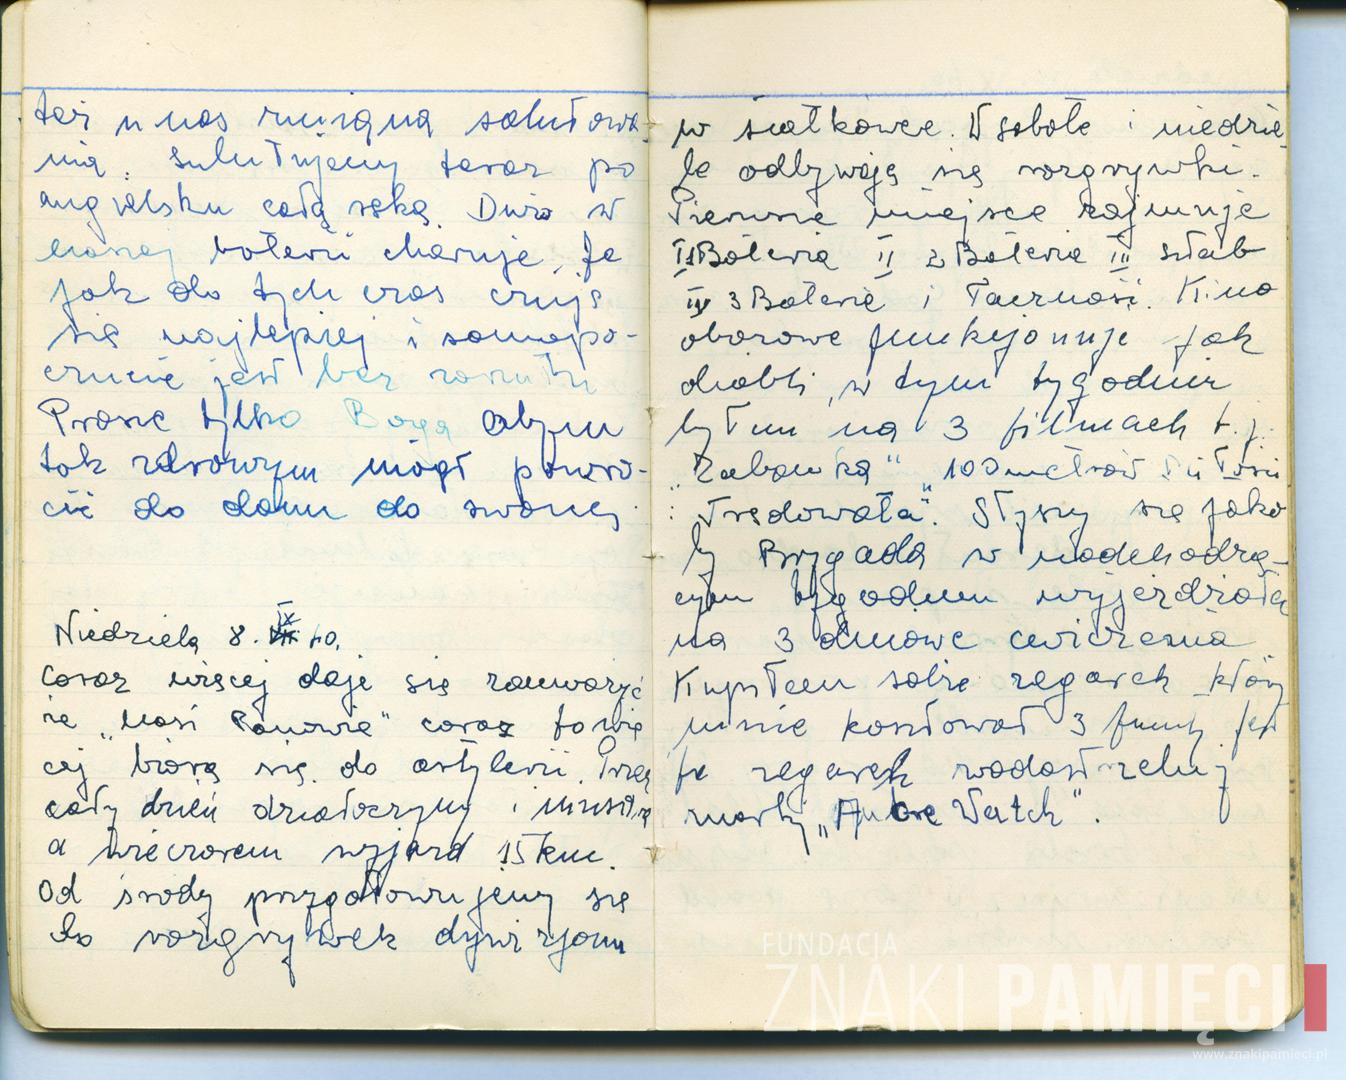 też u nas zmianą salutowa-
nia. Salutujemy teraz po
angielsku całą ręką. Dużo w
naszej baterii choruje. Ja
jak do tych czas czuję
się najlepiej i samopo-
czucie jest bez zarzutu
Proszę tylko Boga abym
tak zdrowym mógł powró-
cić do domu do swoich
Niedziela 8 IX 40.
coraz więcej daje się zauważyć
że "nasi Panowie" coraz to wię
cej biorą się do artylerii. Przez
cały dzień działoczyny i musztra
a wieczorem wyjazd 15 km.
Od środy przygotowujemy się
do rozgrywek dywizjonu
w siatkówce. W sobotę i niedzie
lę odbywają się rozgrywki.
Pierwsze miejsce zajmuje
I 1 Bateria II 2 Bateria III sztab
IV 3 Bateria i Łączność. Kino
obozowe funkcjonuje jak
diabli, w tym tygodniu
byłem na 3 filmach t.j.
"Zabawka" "100 metrów miłości
"Trędowata". Słyszy się jako
by Brygada w nadchodzą-
cym tygodniu wyjeżdżała
na 3 dniowe ćwiczenia
Kupiłem sobie zegarek który
mnie kosztował 3 funty jest
to zegarek wodoszczelny
marki "Ancre Watch".
FUNDACJA
ZNAKI PAMIĘCI
www.znakipamieci.pl